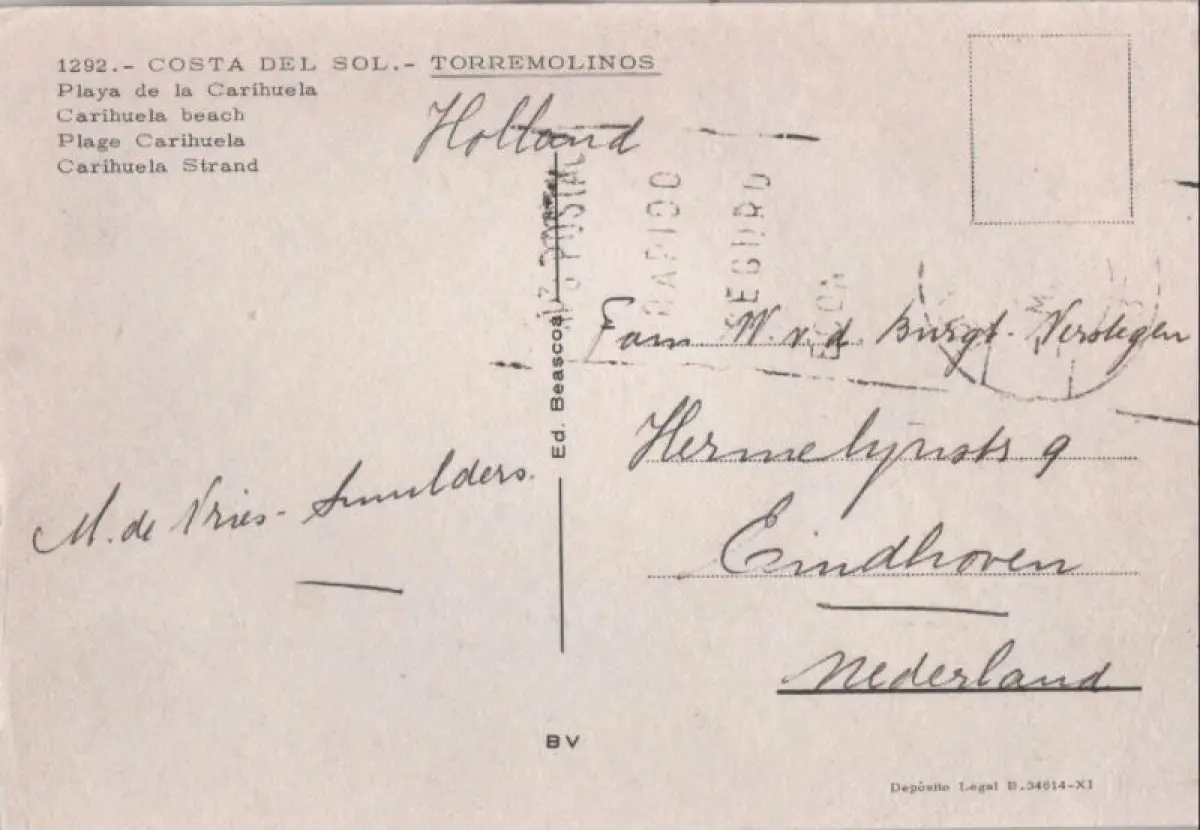 1292.- COSTA DEL SOL.- TORREMOLINOS
Playa de la Carihuela
Carihuela beach
Plage Carihuela
Carihuela Strand
Holland
RAPIDO
SEGURO
Ed. Beascoa
Fam W. v. d. Burgt - Verstegen
Hermelijnstr 9
Eindhoven
Nederland
M. de Vries - Smulders.
BV
Depósito Legal B.34614-XI